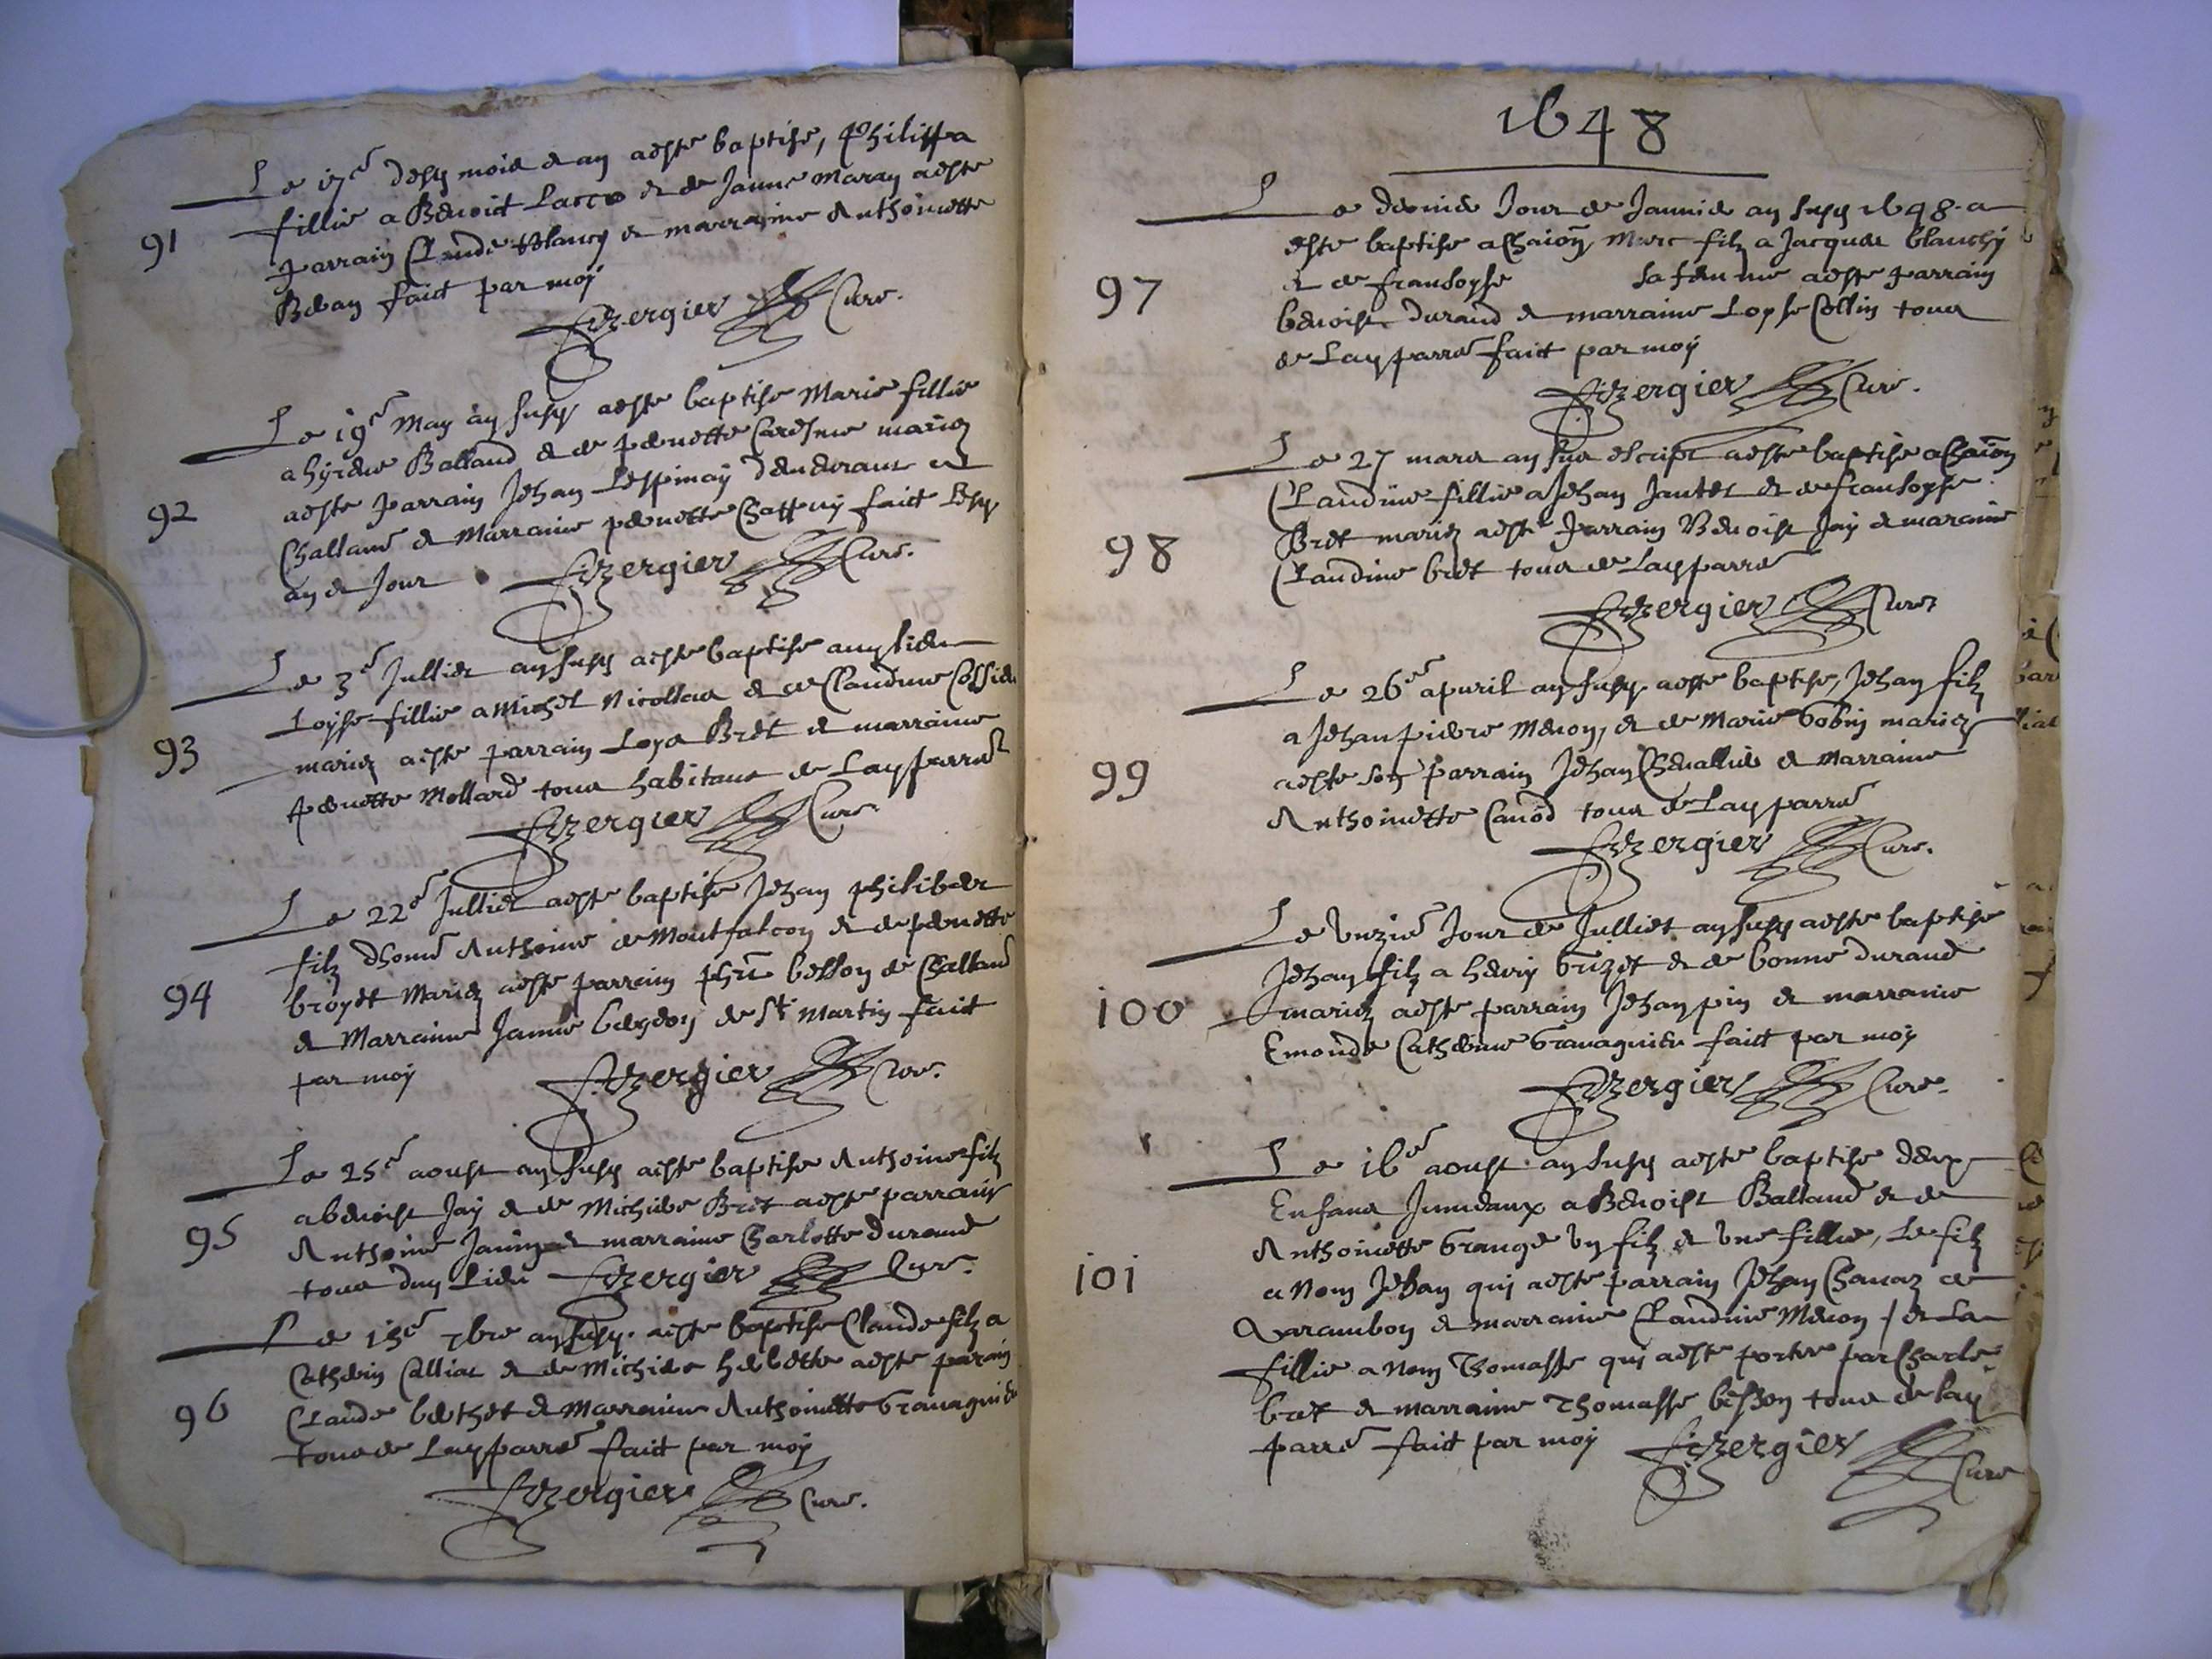 Le 17e desd mois et an aeste baptisé, Philippa
fillie a Benoict Lacro et de Janne maran aeste
91
parrain Claude blanc et marraine Anthoinette
faict par moy
Bergier Curé.
Le 19e May an susd aeste baptisé Marie fillie
a hyreme Balland et de pernette Caresme mariez
92
aeste parrain Jehan Lespinay demeurant a
Challame et Marraine pernette Chappuy faict lesd
an et Jour Bergier Curé.
Le 3e Julliet an susd aeste baptisé
Loyse fillie a Michel Nicollas et de Claudine
93
mariez aeste parrain Loys Bret et marraine
pernette Mollard tous habitans de Laypparre
Bergier Curé.
Le 22e Julliet aeste baptisé Jehan philibert
filz dhon Anthoine de Montfalcon et de pernette
94
broyet Mariez aeste parrain besson de Challame
et Marraine Janne de St Martin faict
par moy Bergier Curé.
Le 25e aoust an susd aeste baptisé Anthoine filz
a benoist Jay et de Michiere Bret aeste parrain
95
Anthoine Janin et marraine Charlotte durand
tous dud Lieu Bergier Curé.
Le 15e 7bre an susd. aeste baptisé Claude filz a
Catherin Calliat et de Michiere aeste parrain
96
Claude berthet et Marraine Anthoinette Gravagnieu
tous de Laypparre faict par moy
Bergier Curé.
1648
Le dernier Jour de Janvier an susd 1648. a
este baptisé a Marc filz a Jacques blanchy
97
et de fransoyse sa femme aeste parrain
benoist durand et marraine Loyse Collin tous
de Laypparre faict par moy
Bergier Curé.
Le 27 mars an sus escript aeste baptisé a
Claudine fillie a Jehan Jantet et de fransoyse
98
Bret mariez aeste parrain Benoist Jay et maraine
Claudine bret tous de Laypparre
Bergier Curé
Le 26e apuril an susd. aeste baptisé, Jehan filz
a Jehan pierre Meron, et de Marie Gobin mariez
99
aeste son parrain Jehan Chevallier et Marraine
Anthoinette Canod tous de Laypparre
Bergier Curé.
Le unzie Jour de Julliet an susd aeste baptisé
Jehan filz a henry Grizet et de bonne durand
100
mariez aeste parrain Jehan pin et marraine
Emonde Catherine Gravagnieu faict par moy
Bergier Curé.
Le 16e aoust an susd aeste baptisé deux
Enfans Jumeaux a Benoist Balland et de
Anthoinette Grange un filz et une fillie, Le filz
101
a Nom Jehan qui aeste parrain Jehan Chanaz de
Varambon et marraine Claudine Meron / et La
fillie a Nom Thomasse qui aeste portee par Charle
bret et marraine Thomasse besson tous de lay
parre faict par moy Bergier
Curé